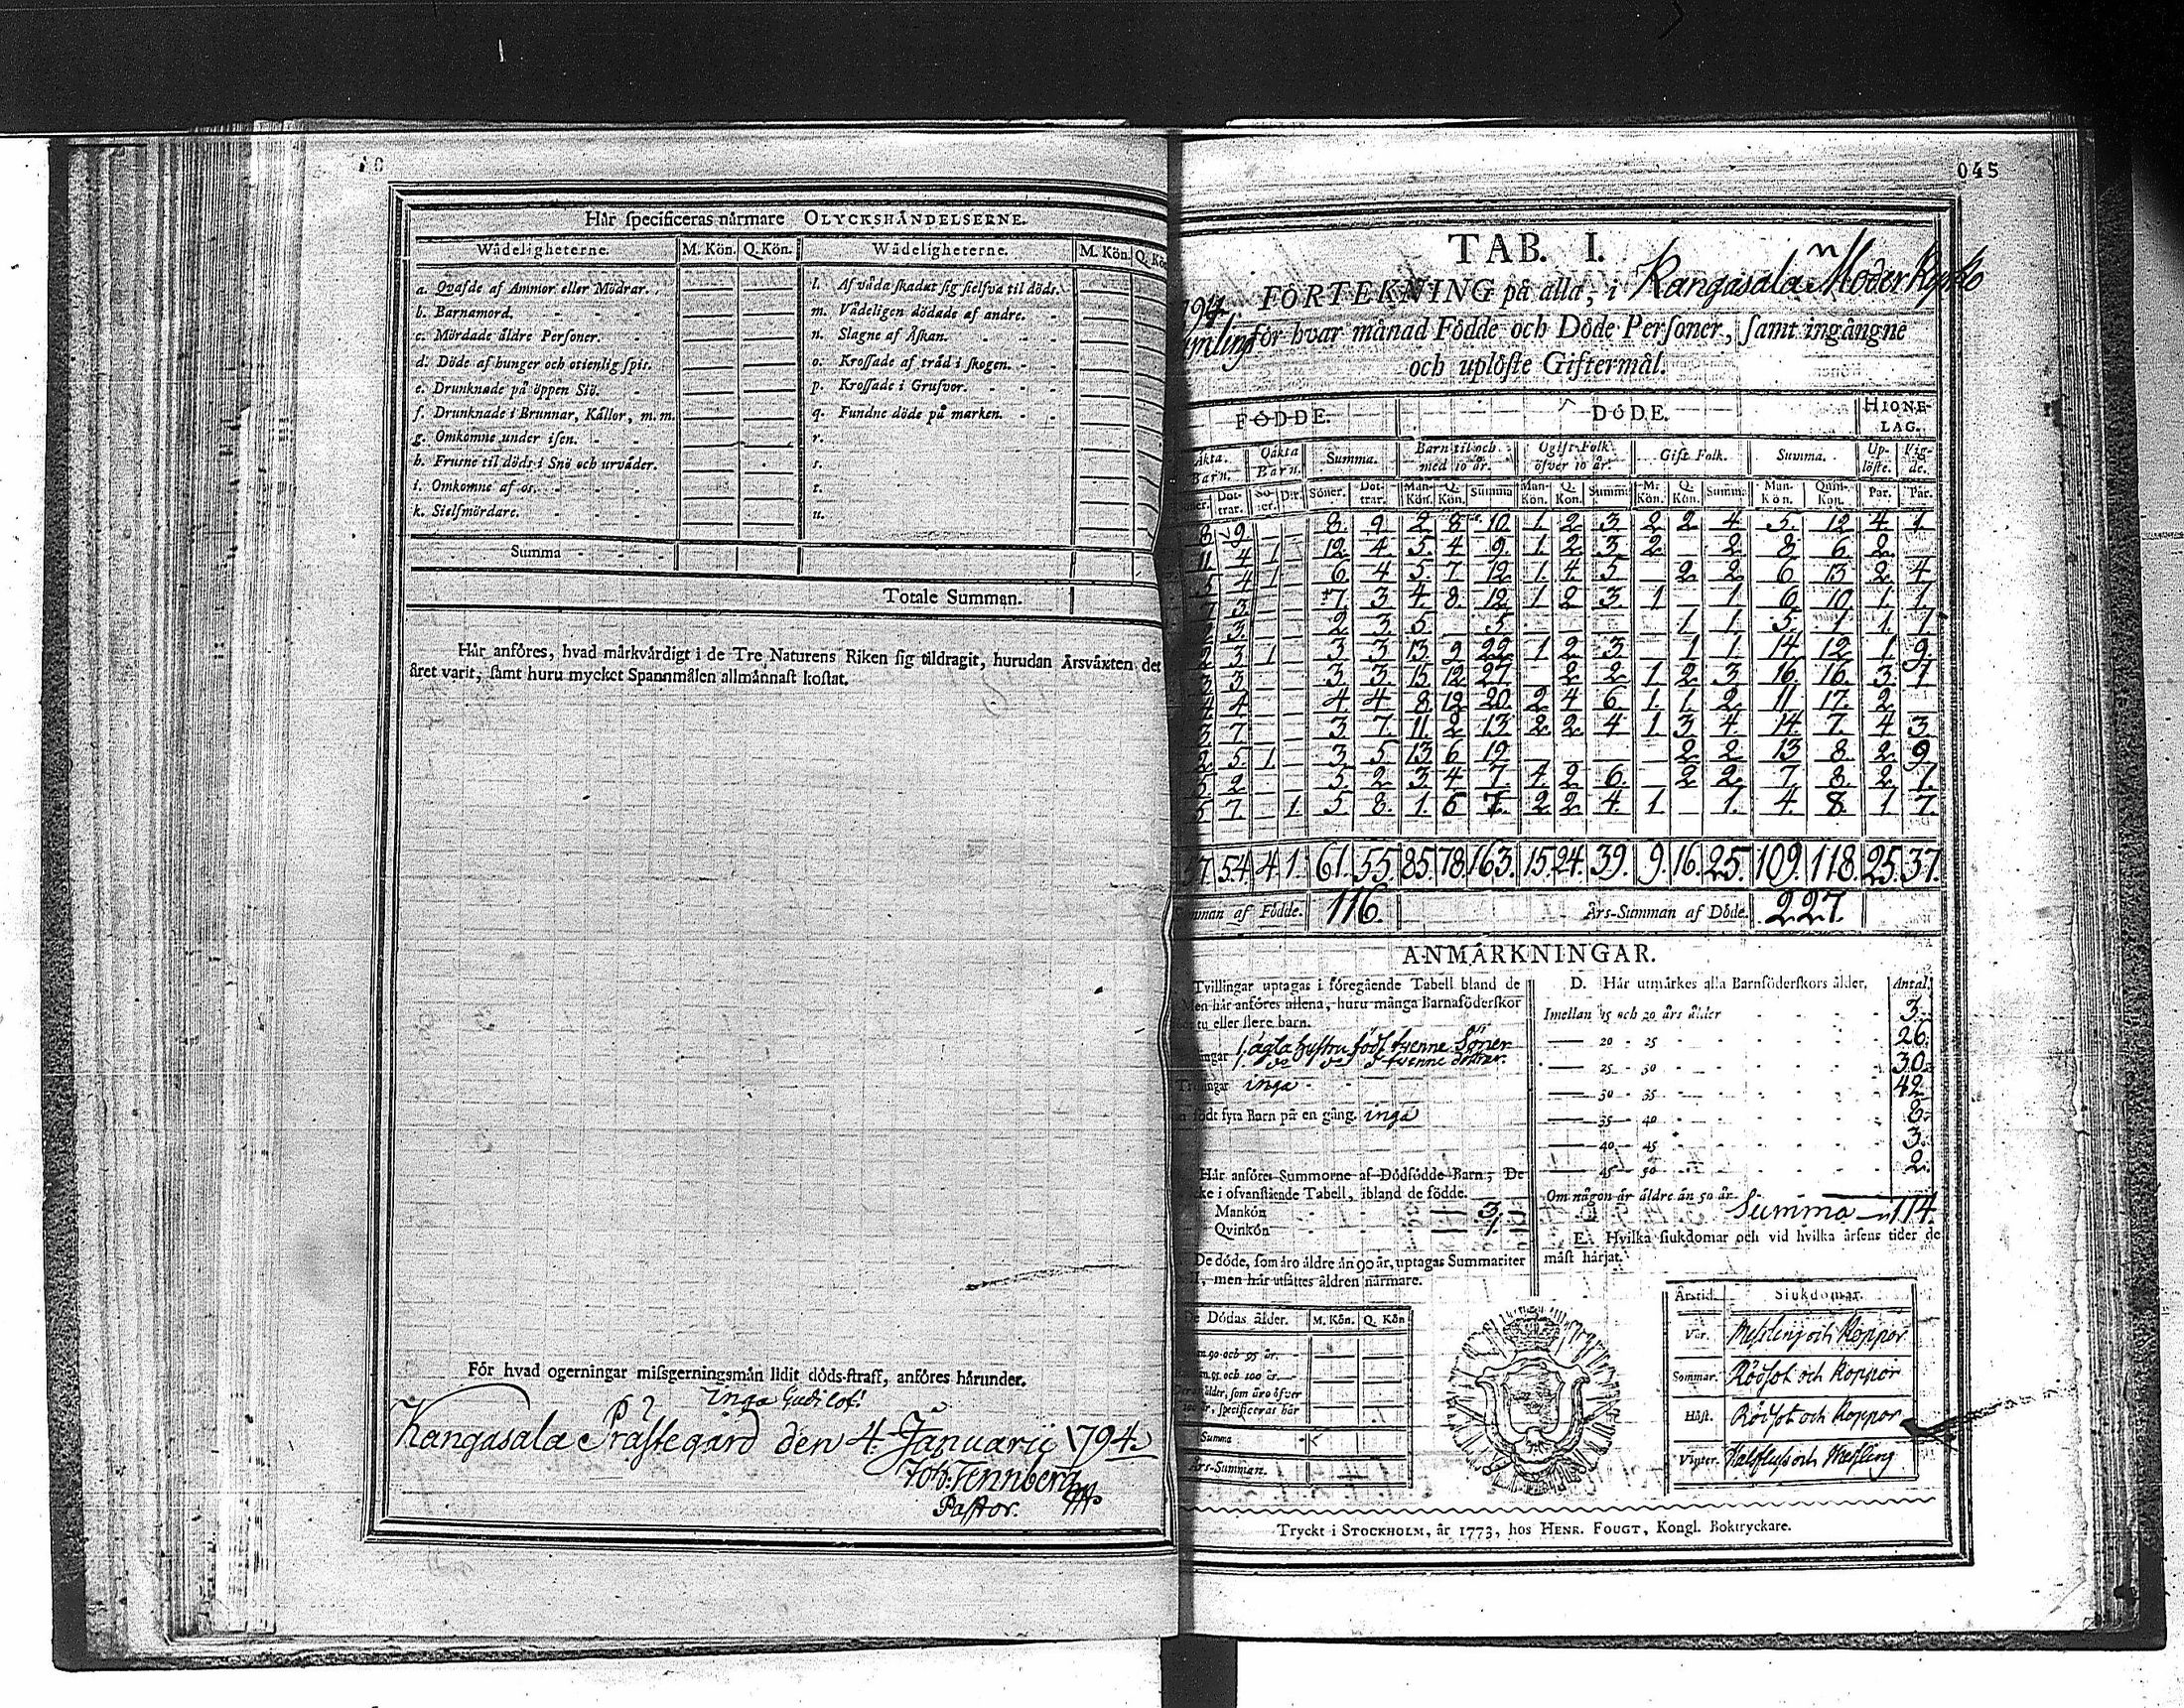 045
Hår ſpecificeras nårmare OLYCKSHÅNDELSERNE.
Wådeligheterne. M. Kön. Q. Kön. Wådeligheterne. M. Kön.
a. Qvafde af Ammor eller Mödrar. l. Af våda ſkadat ſig ſielfva til döds.
b. Barnamord. m. Vådeligen dödade af andre.
c. Mördade åldre Perſoner. n. Slagne af Åſkan.
d. Döde af hunger och otienlig ſpis. o. Kroſſade af tråd i ſkogen.
e. Drunknade på öppen Siö. p. Kroſſade i Grufvor.
f. Drunknade i Brunnar, Kållor, m. m. q. Fundne döde på marken.
g. Omkomne under iſen. r.
h. Fruſne til döds i Snö och urvåder. s.
i. Omkomne af os. t.
k. Sielfmördare. u.
Summa
Totale Summan.
Hår anföres, hvad mårkvårdigt i de Tre Naturens Riken ſig tildragit, hurudan Årsvåxten det
året varit, ſamt huru mycket Spannmålen allmånnaſt koſtat.
För hvad ogerningar miſsgerningsmån lidit döds-ſtraff, anföres hårunder.
Inga Gudi lof!
Kangasala Präſtegård den 4. Januarii 1794.
Joh: Tennberg
Paſtor.
TAB. I.
FÖRTEKNING på alla, i Kangasala Moderkyrko
för hvar månad Födde och Döde Perſoner, ſamt ingångne
och uplöſte Giftermål.
FÖDDE. DÖDE. HIONE-
LAG.
Åkta Barn. Oåkta Barn. Summa. Barn til och med 10 år. Ogift Folk öfver 10 år. Gift Folk. Summa. Up-löſte. Vig-de.
Dot-trar. Sö-ner. Dtr. Söner. Dot-trar. Man-Kön. Q. Kön. Summa Man-Kön. Q. Kön. Summa M. Kön. Q. Kön. Summa Man-Kön. Quin-Kön. Par. Par.
8 9. 8. 9. 2 8 10. 1. 2 3 2 2 4 5. 12 4 1.
11 4 1 12. 4. 5. 4 9. 1. 2. 3. 2. 2. 8 6 2.
5 4 1 6 4 5. 7 12 1. 4. 5 2 2 6 13 2. 4
7 3. 7. 3 4. 8. 12 1 2 3. 1 1. 6 10. 1. 1
2 3. 2 3. 5. 5. 1 1. 5. 1 1. 7
2 3 1 3 3 13. 9 22 1 2 3 1 1 14 12 1 9.
3 3 3 3. 15 12 27 2 2 1 2 3 16. 16. 3. 1
4 4 4 4 8 12 20. 2 4 6 1. 1 2 11 17. 2
3 7 3 7. 11 2 13 2. 2. 4 1 3 4 14. 7. 4 3
2 5. 1 3. 5 13 6 19 2 2 13 8. 2. 9
5 2 5. 2 3. 4 7. 4. 2 6. 2 2. 7 8. 2 1.
5 7. 1. 5 8. 1. 6 7. 2 2. 4. 1 1. 4. 8. 1 7.
57 54. 4. 1. 61. 55. 85. 78. 163. 15. 24. 39. 9. 16. 25. 109. 118. 25. 37.
af Födde. 116. Års-Summan af Döde. 227.
ANMÅRKNINGAR.
Tvillingar uptagas i föregående Tabell bland de
Men hår anföres allena, huru många Barnaföderſkor
tu eller flere barn.
1. ägta hustru födt tvenne Söner
1. do do d tvenne döttrar.
inga
födt fyra Barn på en gång. inga
Hår anföres Summorne af Dödfödde Barn; De
i ofvanſtående Tabell, ibland de födde.
Mankön 3.
Qvinkön 1.
De döde, ſom åro åldre ån 90 år, uptagas Summariter
men hår utſåttes åldren nårmare.
De Dödas ålder. M. Kön. Q. Kön
90 och 95 år.
95 och 100 år.
ålder, ſom åro öfver
ſpecificeras hår
Summa
Års-Summan.
D. Hår utmårkes alla Barnföderſkors ålder. Antal.
Imellan 15 och 20 års ålder 3.
20 - 25 26.
25 - 30 30.
30 - 35 42.
35 - 40 8.
40 - 45 3.
45 - 50 2.
Om någon år åldre ån 50 år.
Summa 114.
E. Hvilka ſiukdomar och vid hvilka årſens tider de
måſt hårjat.
Årstid. Siukdomar.
Vår. Meſsling och Koppor
Sommar. Rödsot och Koppor
Höſt. Rödsot och Koppor
Vinter. Halsfluſs och Meſsling
Tryckt i STOCKHOLM, år 1773, hos HENR. FOUGT, Kongl. Boktryckare.